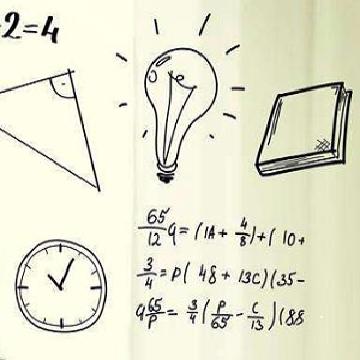 ·2=4
65/12 q = (1A + 4/8) + ( 10+
3/4 = P( 48 + 13C)(35-
q 65/P = 3/4 ( P/65 - C/13 ) (88